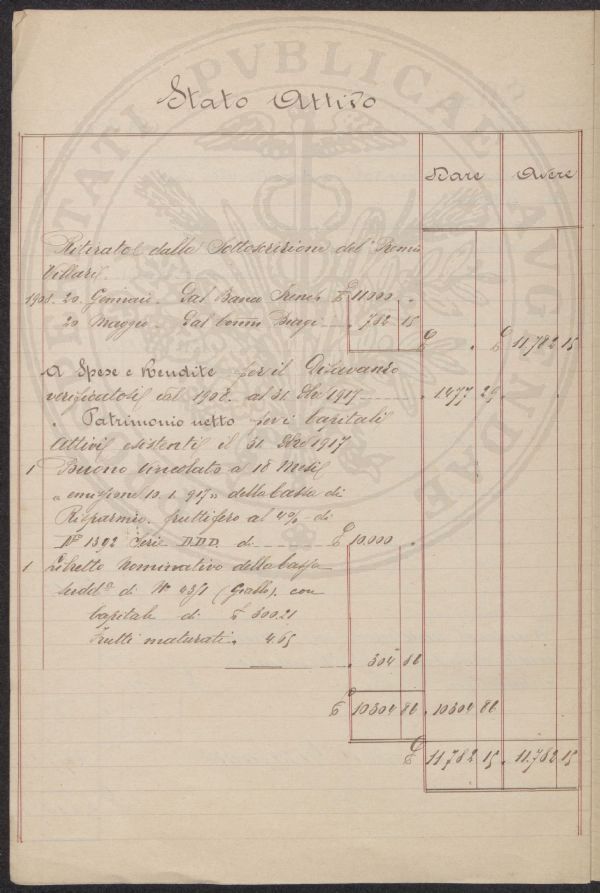 Stato Attivo
Dare Avere
Ritirato dalla Sottoscrizione del Premio
Villari
1908. 20. Gennaio. Dal Banco French £ 11000 .
20 Maggio. Dal Comm Biagi . 782 15
£ . £ 11.782 15
A Spese e Rendite per il Disavanzo
verificatosi dal 1908. al 31. Dbre 1917 . 1477 29 .
" Patrimonio netto per i Capitali
Attivi esistenti il 31 Dbre 1917
1 Buono vincolato a 18 Mesi
" emissione 10. 1. 917 " della Cassa di
Risparmio. fruttifero al 4% di
N° 1392 Serie D.D.D. di £ 10.000 .
1 Libretto Nominativo della Cassa
sudd.a di N° (Giallo). con
Capitale di £ 300.21
Frutti maturati . 4.65
. 304 86
£ 10304 86 . 10304 86
£ 11782 15 . 11.782 15